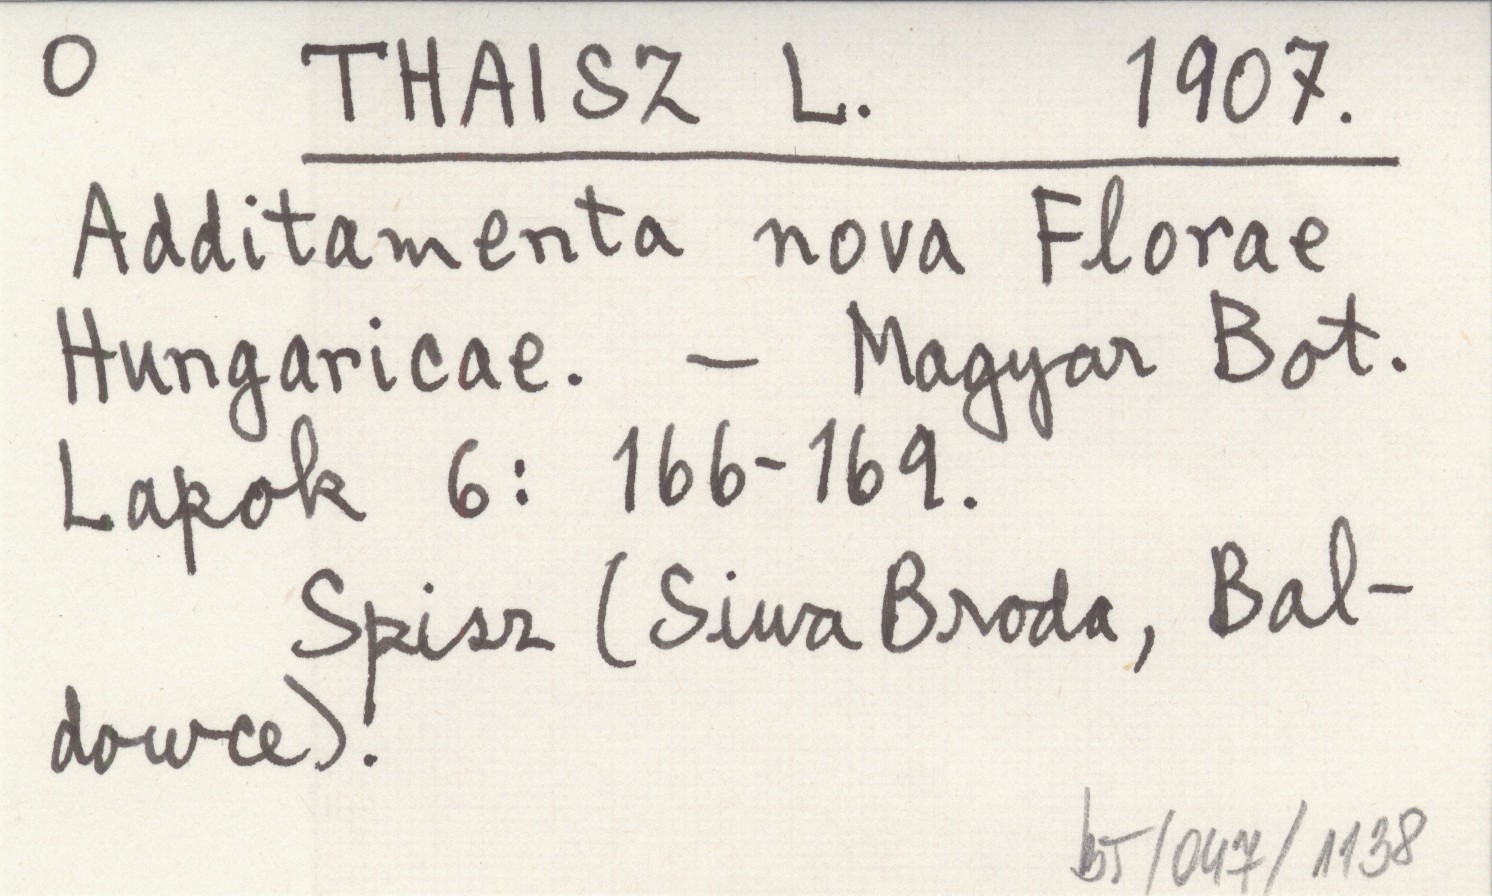 O THAISZ L. 1907.
Additamenta nova Florae
Hungaricae. – Magyar Bot.
Lapok 6: 166-169.
Spisz (Siwa Broda, Bal-
dowce).
bT/047/1138